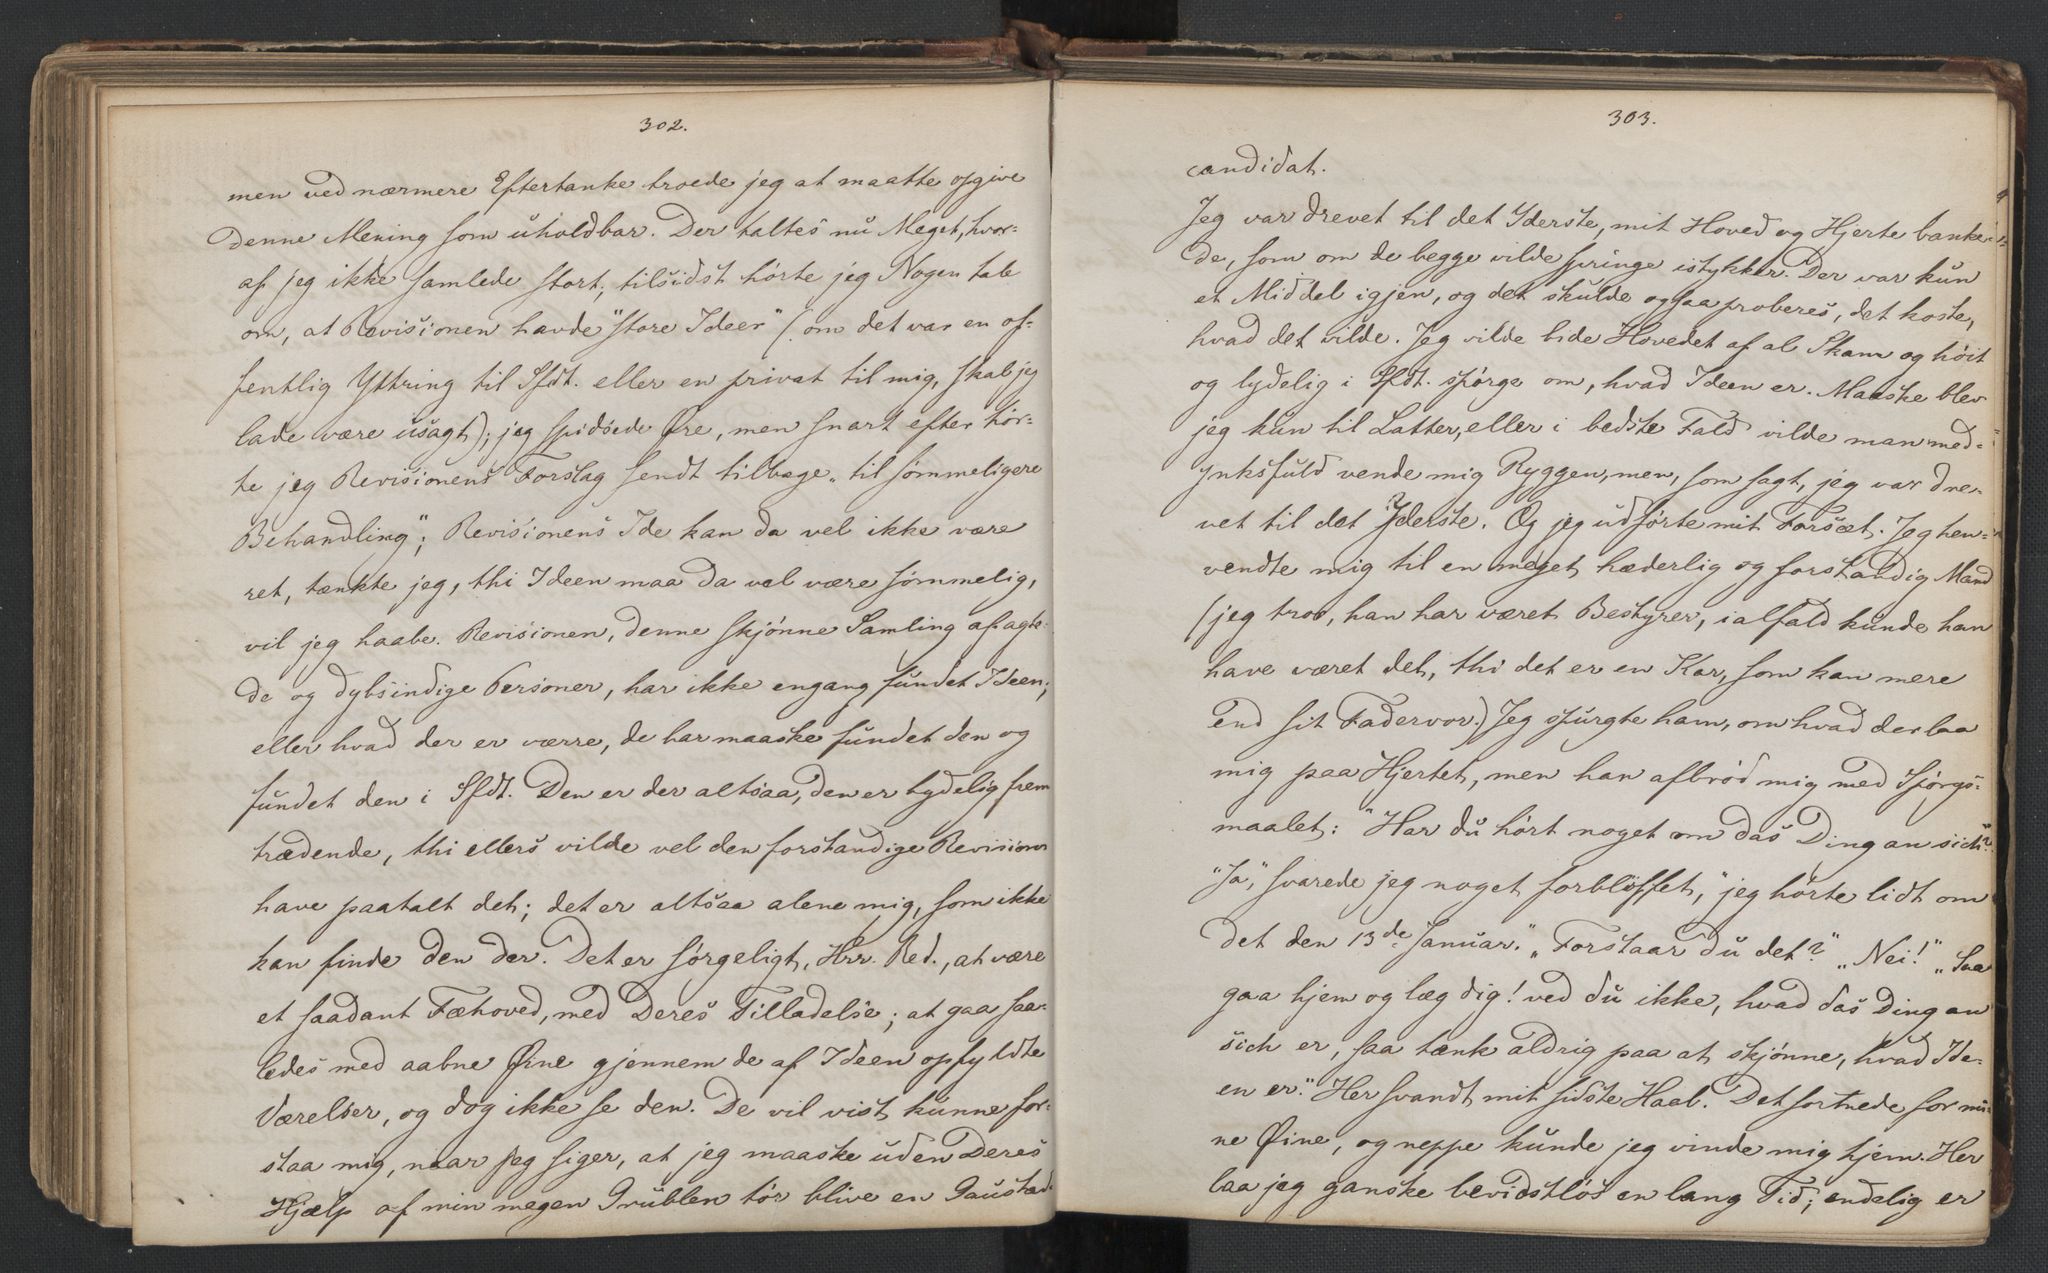 302.
men ved nærmere Eftertanke troede jeg at maatte opgive
denne Mening som uholdbar. Der taltes nu Meget, hvor-
af jeg ikke samlede stort; tilsidst hørte jeg Nogen tale
om, at Revisionen havde "store Ideer" (om det var en of-
fentlig Yttring til Sfdt. eller en privat til mig, skal jeg
lade være usagt); jeg spidsede Øre, men snart efter hør-
te jeg Revisionens Forslag sendt tilbage „til sømmeligere
Behandling"; Revisionens Ide kan da vel ikke være
ret, tænkte jeg, thi Ideen maa da vel være sømmelig,
vil jeg haabe. Revisionen, denne skjønne Samling af agte-
de og dybsindige Personer, har ikke engang fundet Ideen;
eller hvad der er værre, de har maaske fundet den og
fundet den i Sfdt. Den er der altsaa, den er tydelig frem
trædende, thi ellers vilde vel den forstandige Revision
have paatalt det; det er altsaa alene mig, som ikke
kan finde den der. Det er sørgeligt, Hrr. Red., at være
et saadant Fæhoved, med Deres Tilladelse; at gaa saa-
ledes med aabne Øine gjennem de af Ideen opfyldte
Værelser, og dog ikke se den. De vil vist kunne for-
staa mig, naar jeg siger, at jeg maaske uden Deres
Hjælp af min megen Grublen tør blive en Gaustad-
303.
candidat.
Jeg var drevet til det Yderste, mit Hoved og Hjerte banke-
de, som om de begge vilde springe istykker. Der var kun
et Middel igjen, og det skulde ogsaa proberes, det koste,
hvad det vilde. Jeg vilde bide Hovedet af al Skam og høit
og lydelig i Sfdt. spørge om, hvad Ideen er. Maaske blev
jeg kun til Latter, eller i bedste Fald vilde man med-
ynksfuld vende mig Ryggen, men, som sagt, jeg var dre-
vet til det Yderste. Og jeg udførte mit Forsæt. Jeg hen-
vendte mig til en meget hæderlig og forstandig Mand
(jeg tror, han har været Bestyrer, ialfald kunde han
have været det, thi det er en Kar, som kan mere
end sit Fadervor.) Jeg spurgte ham, om hvad der laa
mig paa Hjertet, men han afbrød mig med Spørgs-
maalet: "Har du hørt noget om das Ding an sich"?
"Ja", svarede jeg noget forbløffet, "jeg hørte lidt om
det den 13de Januar." „Forstaar du det?" „Nei!" „Saa
gaa hjem og læg dig! ved du ikke, hvad das Ding an
sich er, saa tænk aldrig paa at skjønne, hvad Ide-
en er." Her svandt mit sidste Haab. Det sortnede for mi-
ne Øine, og neppe kunde jeg vinde mig hjem. Her
laa jeg ganske bevidstløs en lang Tid; endelig er